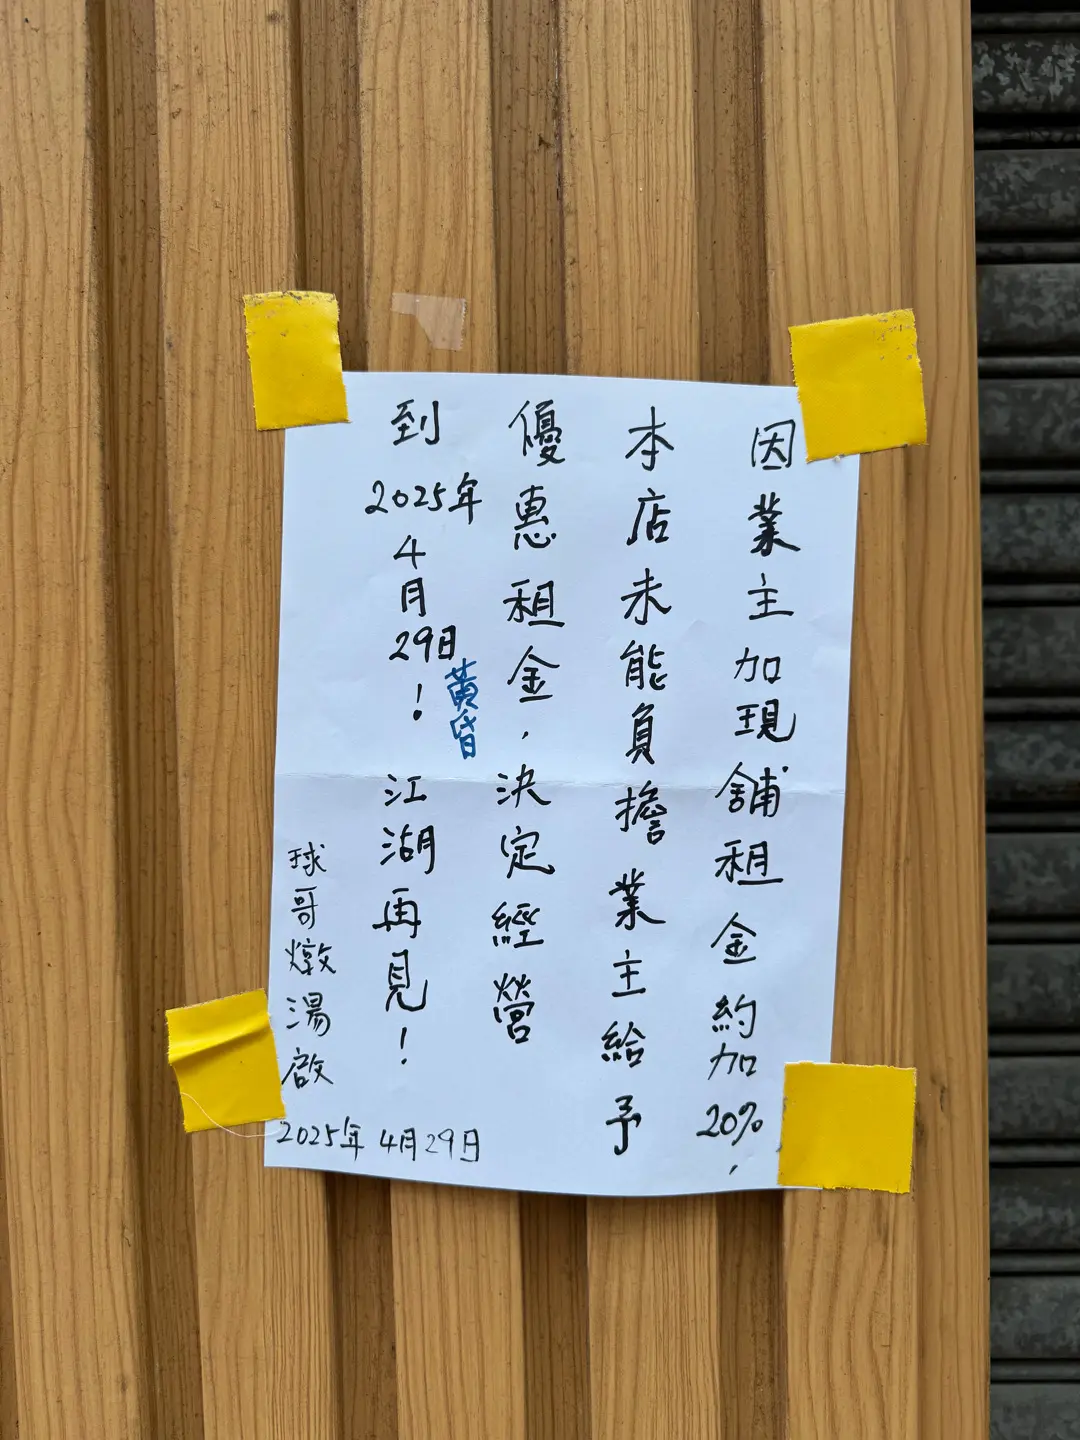 因業主加現舖租金約加20%，
本店未能負擔業主給予
優惠租金，決定經營
到2025年4月29日黃昏！江湖再見！
球哥燉湯啟
2025年4月29日